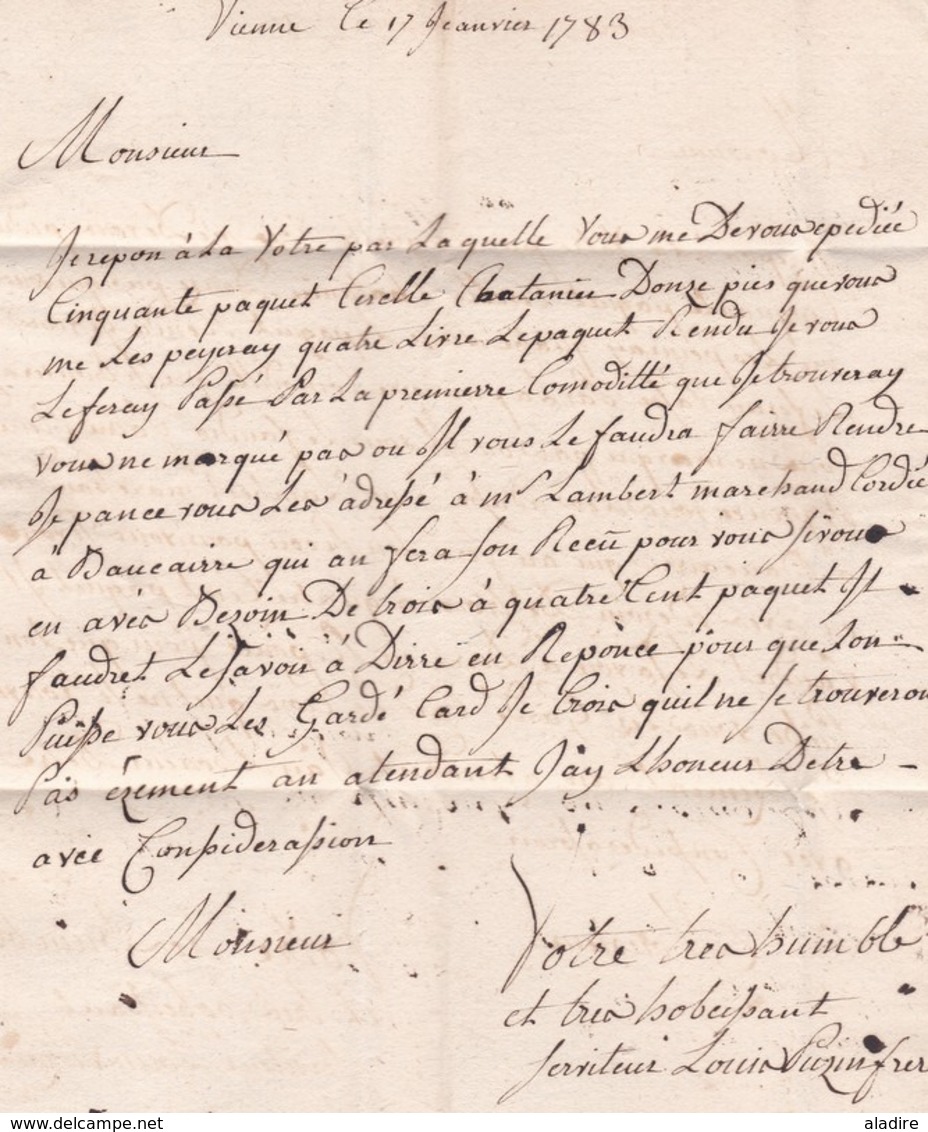 Vienne Le 17 Jeanvier 1783
Monsieur
Je repon à La Votre par Laquelle Vous me De vous epediée
Cinquante paquet Cerelle Chatanier Donze pies que vous
me Les peyeray quatre Livre Le paquet Rendu Je vous
Le feray Passé Par La premierre Comoditté que Je trouveray
vous ne marqué pas ou Il vous Le faudra fairre Rendre
Je pance vous Les adressé à mr Lambert marchand Cordié
à Baucairre qui an fera son Receu pour vous si vous
en avés Bezoin De trois à quatre Cent paquet Il
faudret Le savoir à Dirre en Reponce pour que Lon
Puisse vous Les Gardé Card Je Crois quil ne se trouveron
Pas ézement an atendant Jay Lhoneur Detre
avec Considerassion
Monsieur
Votre tres humble
et tres hobeissant
serviteur Louis Puzin frer
delcampe.net
aladire